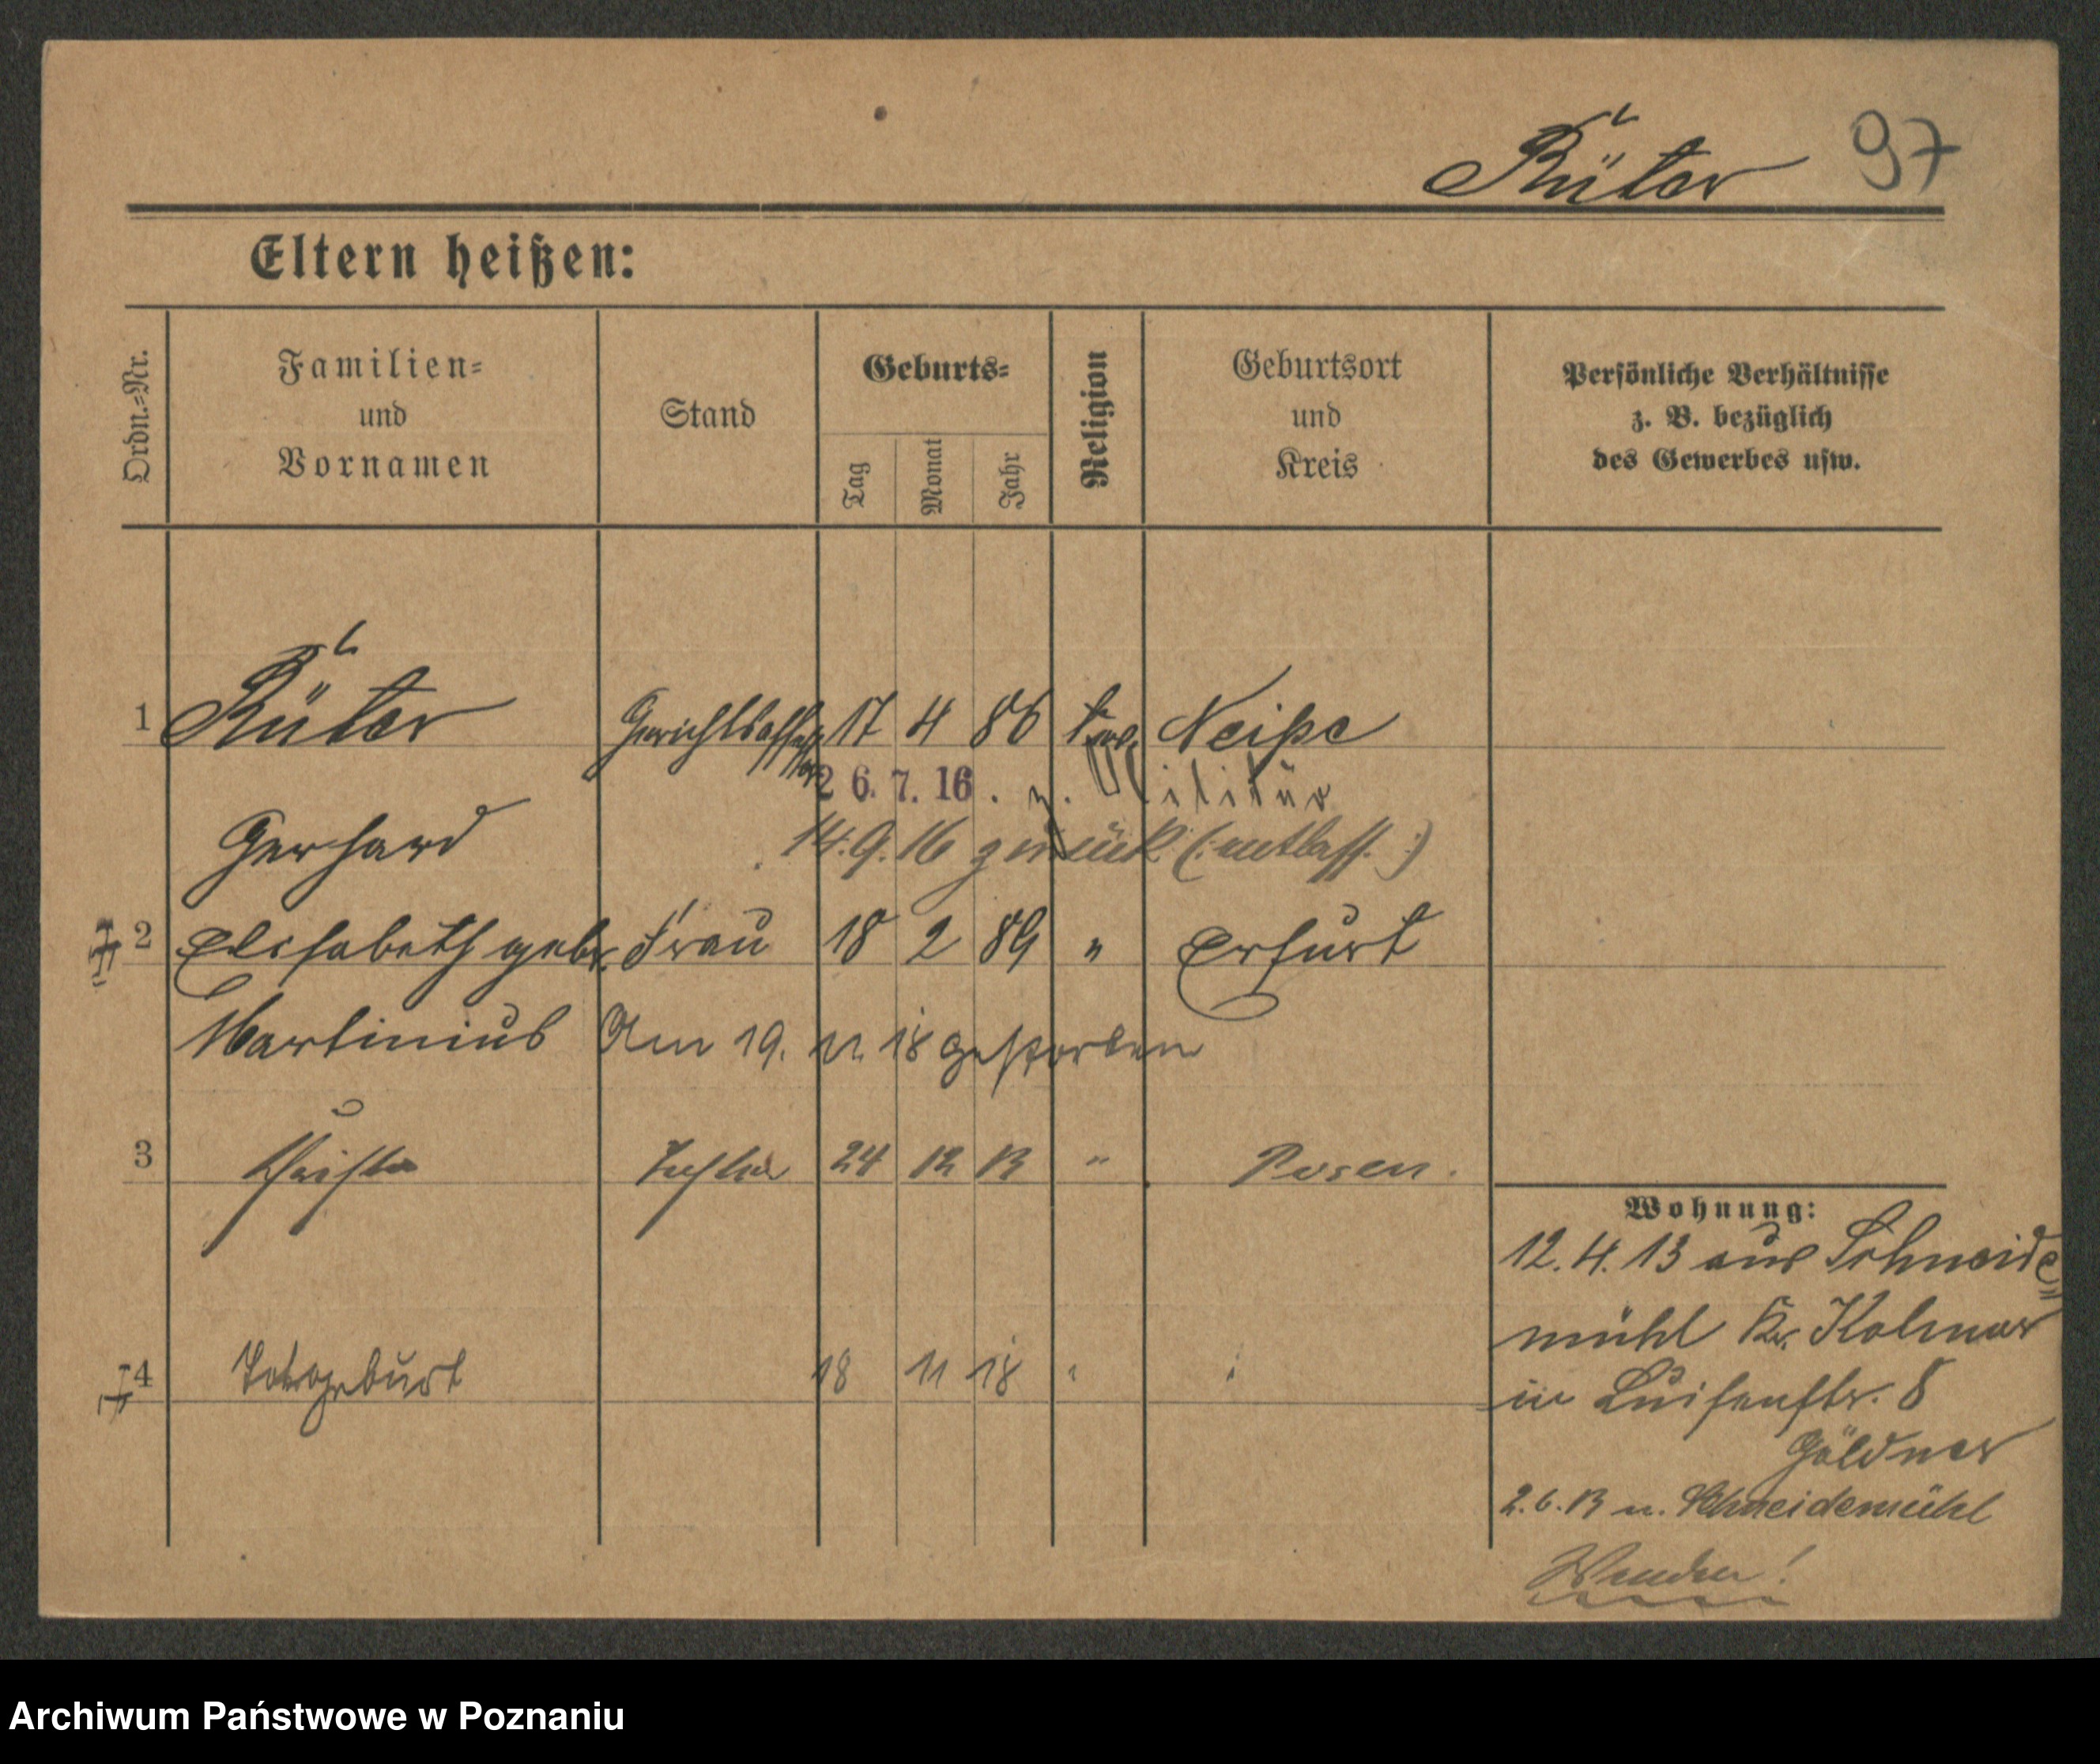 Rüter 97
Eltern heißen:
Ordn.-Nr.
Familien-
und
Vornamen
Stand
Geburts-
Tag
Monat
Jahr
Religion
Geburtsort
und
Kreis
Persönliche Verhältnisse
z. B. bezüglich
des Gewerbes usw.
1 Rüter Gerichtsassessor 17 4 86 ev. Neiße
26. 7. 16. z. Militär
Gerhard 14.9.16 zurück (:entlass.:)
2 Elisabeth geb. Frau 18 2 89 " Erfurt
Martinius Am 19. 11. 18 gestorben
3 Christa Tochter 24 12 13 " Posen.
Wohnung:
12. 4. 13 aus Schneide
mühl Kr. Kolmar
4 Totgeburt 18 11 18 " "
in Luisenstr. 8
Göldner
2.6.13 n. Schneidemühl
Wenden!
Archiwum Państwowe w Poznaniu